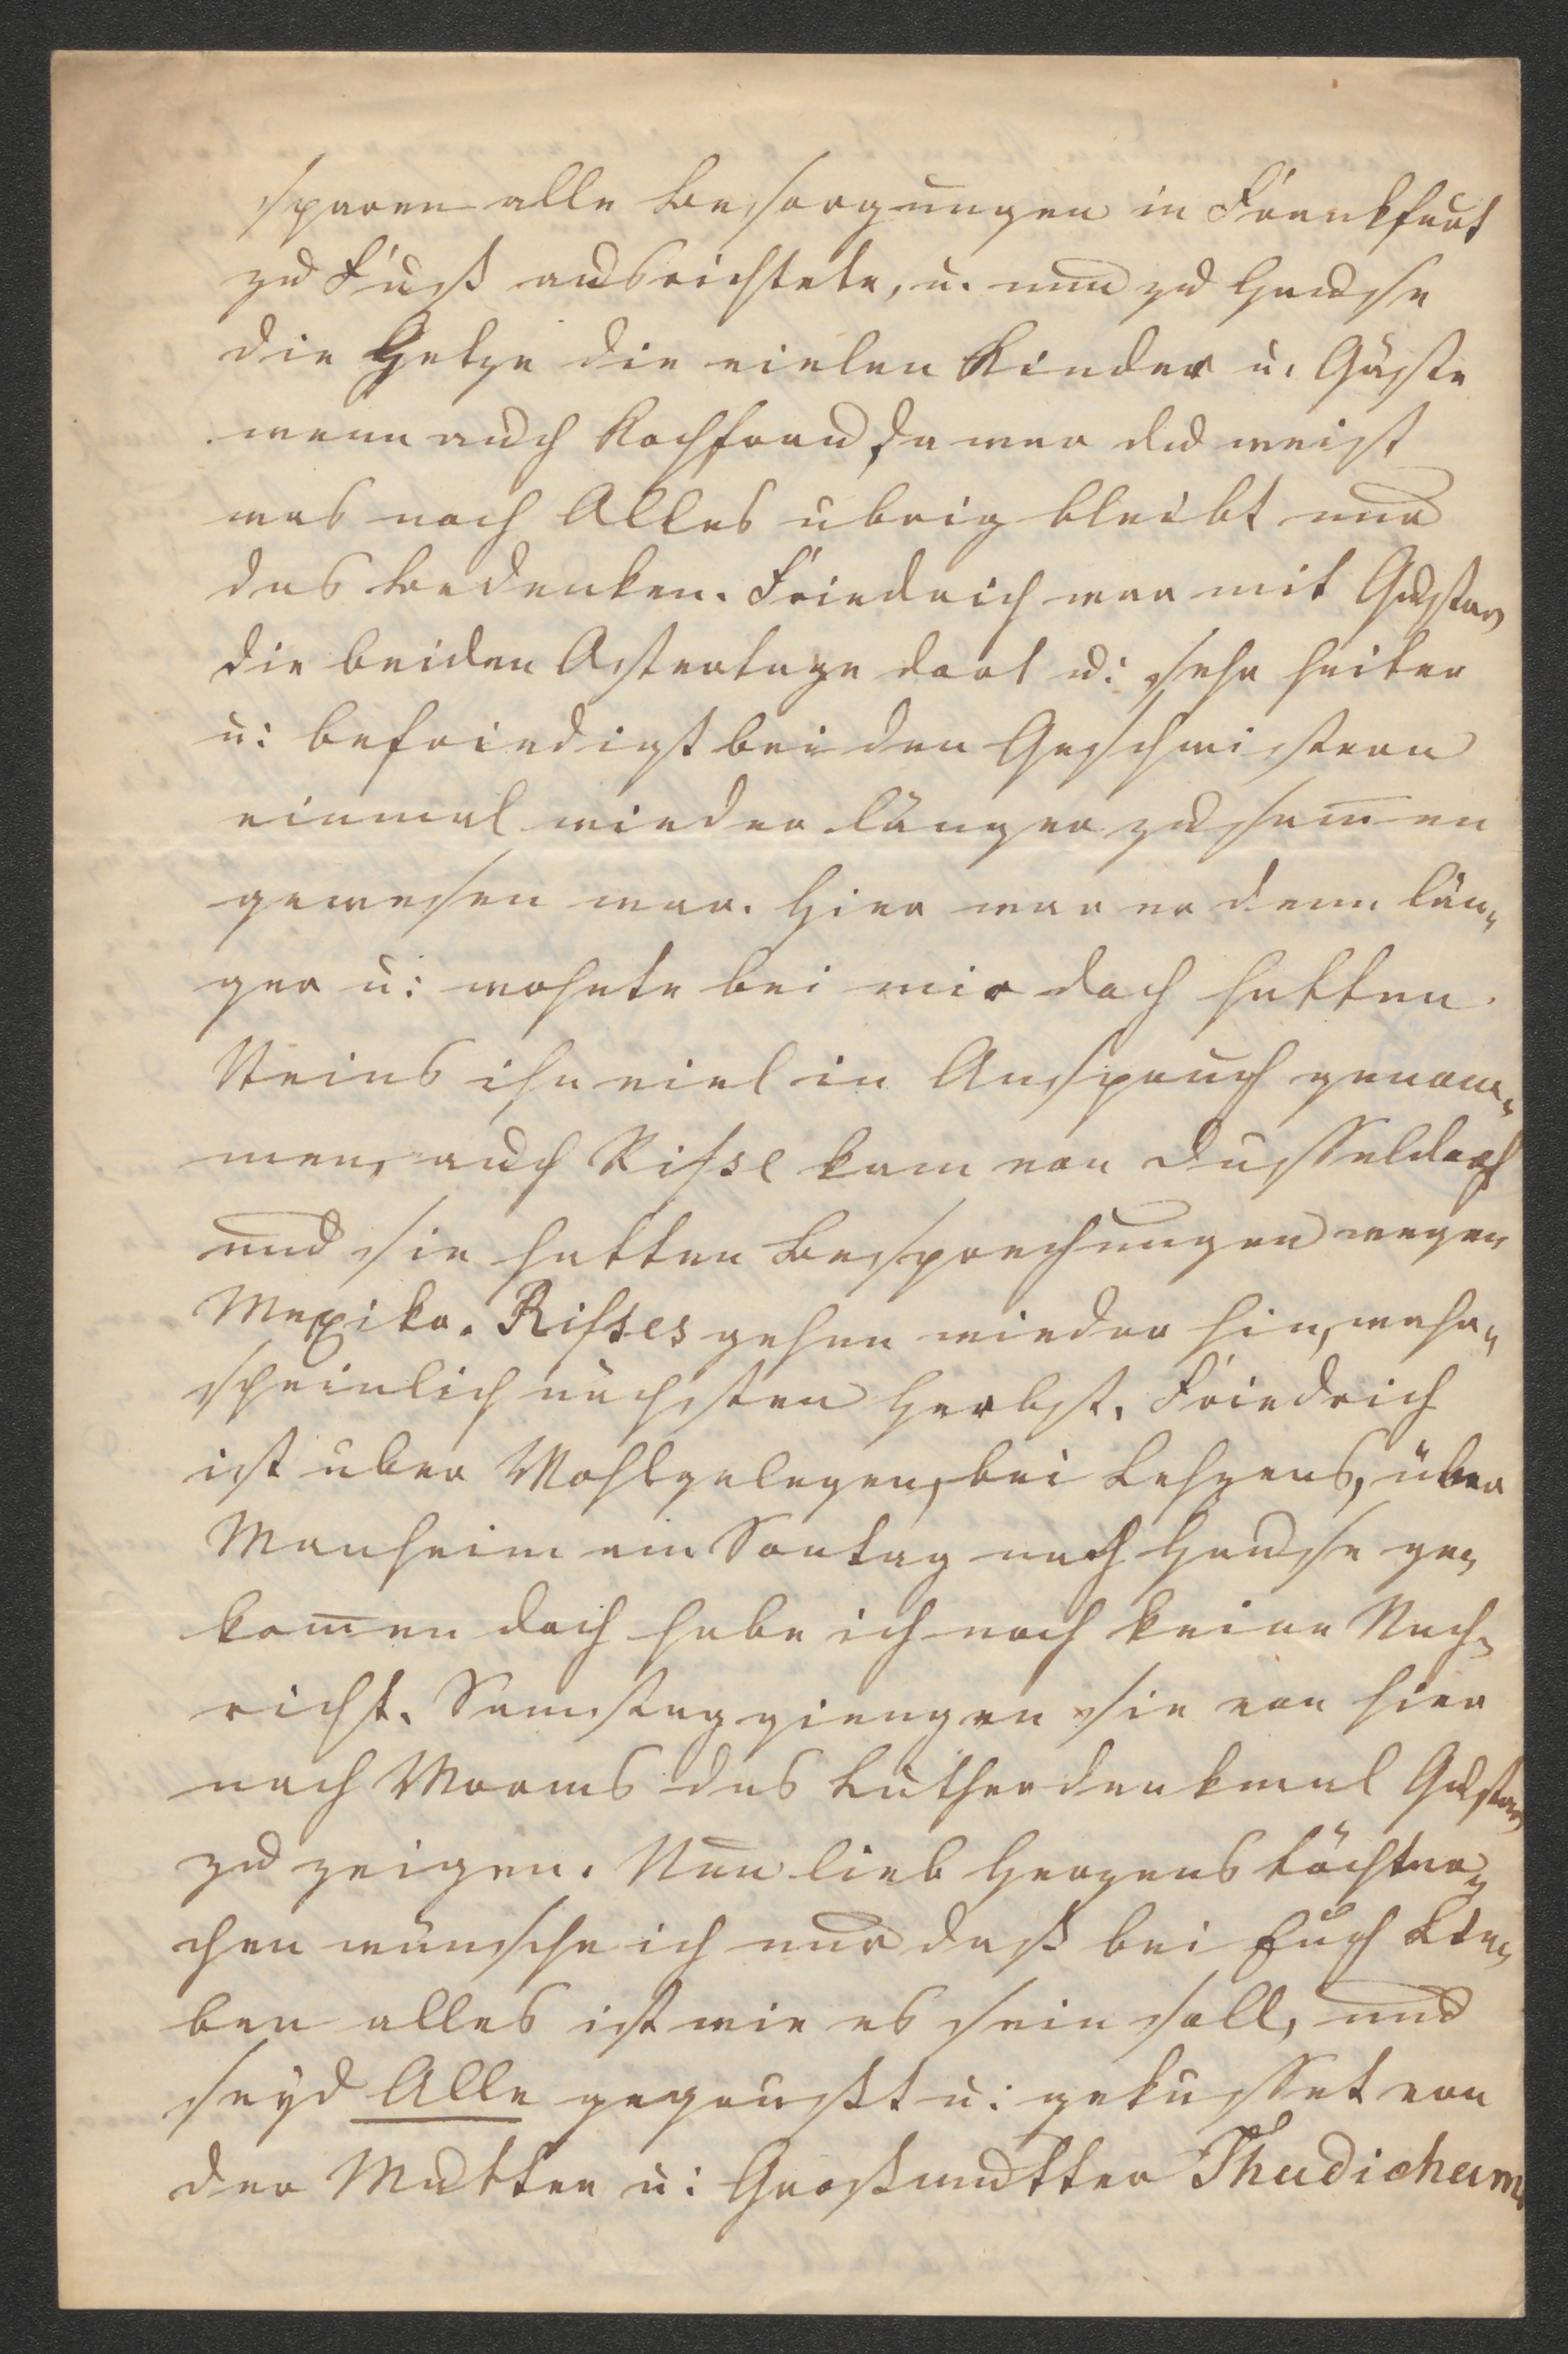 sparen alle Besorgungen in Frankfurt
zu Fuß ausrichtete, u. nun zu Hause
die Hetze die vielen Kinder u. Gäste
wenn auch Kochfrau, da war du weist
was noch Alles übrig bleibt und
das bedenken. Friedrich war mit Gustav
die beiden Ostertage dort u: sehr heiter
u: befriedigt bei den Geschwistern
einmal wieder länger zusam̅en
gewesen war. Hier war er denn län„
ger u: wohnte bei mir doch hatten
Steins ihn viel in Anspruch genom„
men, auch Risse kam von Dusseldorf
und sie hatten Besprechungen wegen
Mexiko. Risses gehen wieder hin, wahr„
scheinlich nächsten Herbst. Friedrich
ist über Wohlgelegen, bei Lehzens, über
Manheim am Sontag nach Hause ge„
kom̅en doch habe ich noch keine Nach„
richt. Samstag giengen sie von hier
nach Worms das Lutherdenkmal Gustav
zu zeigen. Nun lieb Herzens töchter„
chen wünsche ich nur daß bei Euch Lie„
ben alles ist wie es sein soll, und
seyd Alle gegrüßt u: geküsset von
der Mutter u: Großmutter Thudichum